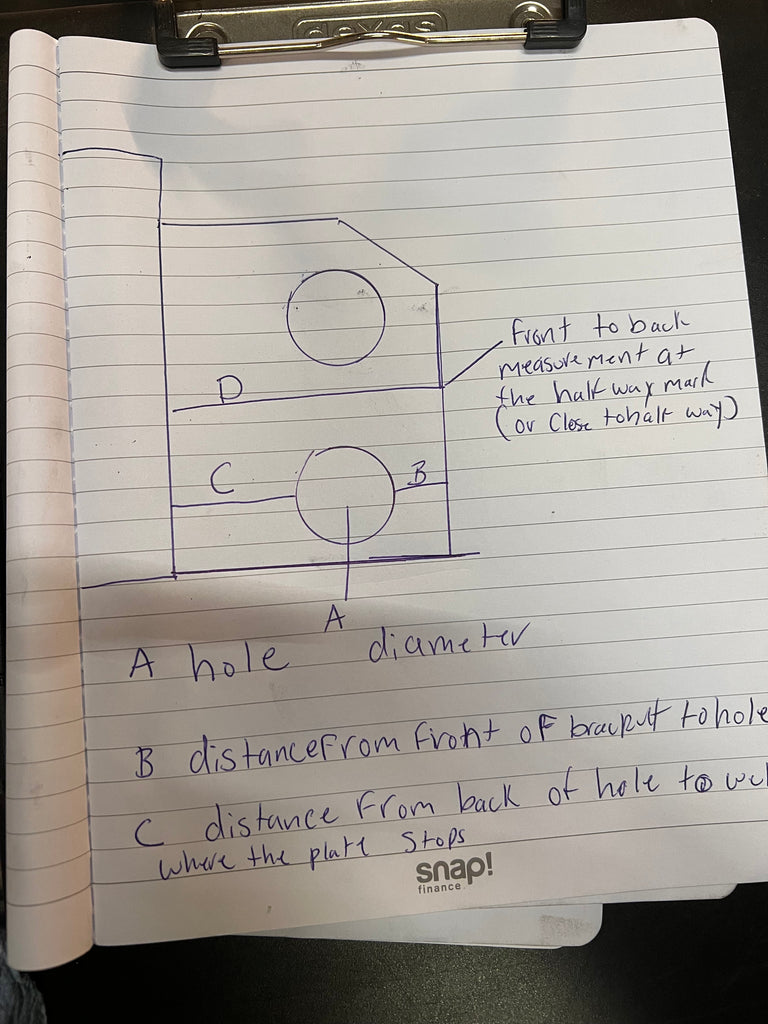 front to back
measurement at
the half way mark
(or Close to half way)
D
C
B
A
A hole diameter
B distance from front of bracket to hole
C distance from back of hole to
where the plate stops
snap!
finance